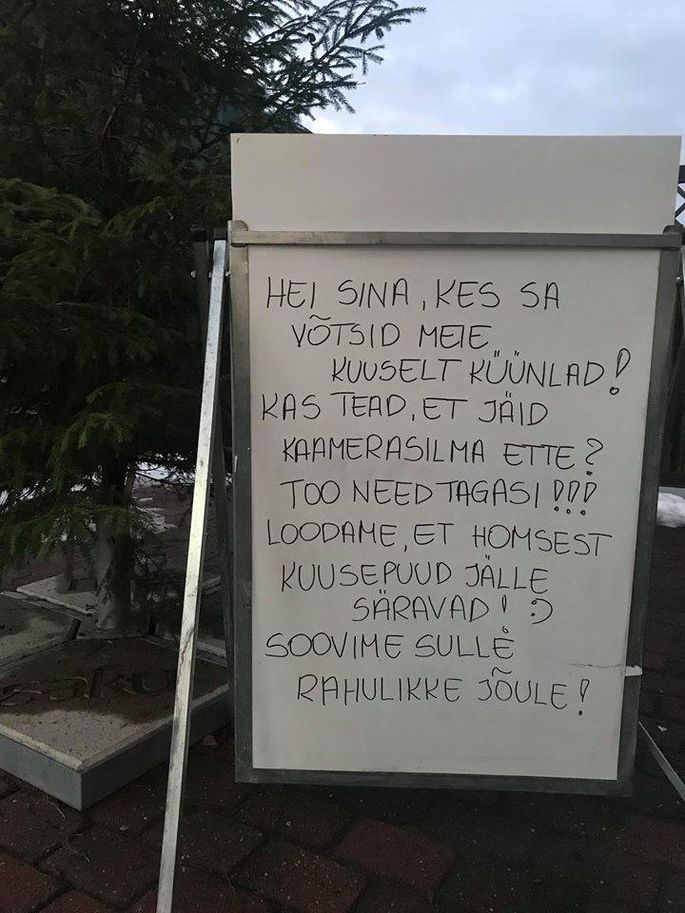 HEI SINA, KES SA
VÕTSID MEIE
KUUSELT KÜÜNLAD!
KAS TEAD, ET JÄID
KAAMERASILMA ETTE?
TOO NEED TAGASI!!!!
LOODAME, ET HOMSEST
KUUSEPUUD JÄLLE
SÄRAVAD! :)
SOOVIME SULLE
RAHULIKKE JÕULE!